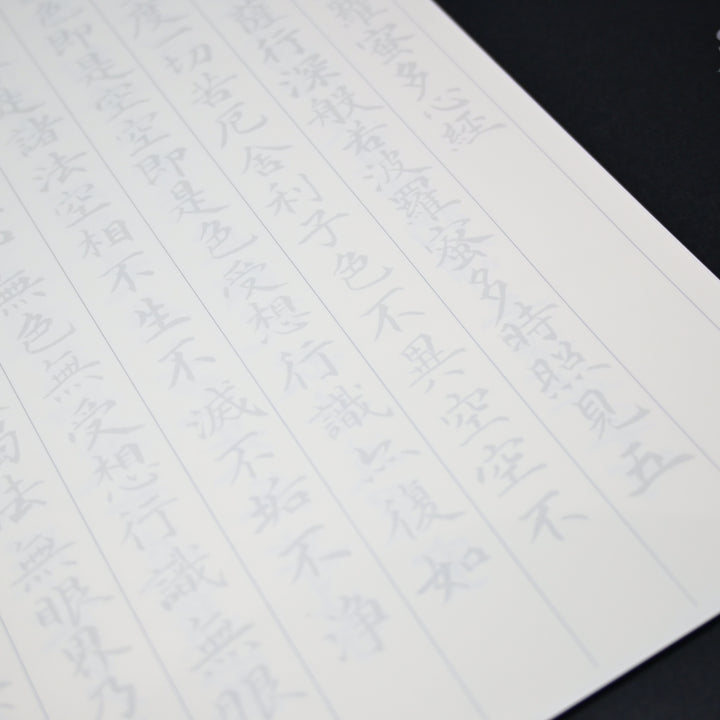 羅蜜多心經
薩行深般若波羅蜜多時照見五
度一切苦厄舍利子色不異空空不
色即是空空即是色受想行識亦復如
是諸法空相不生不滅不垢不浄
無色無受想行識無眼
法無眼界乃